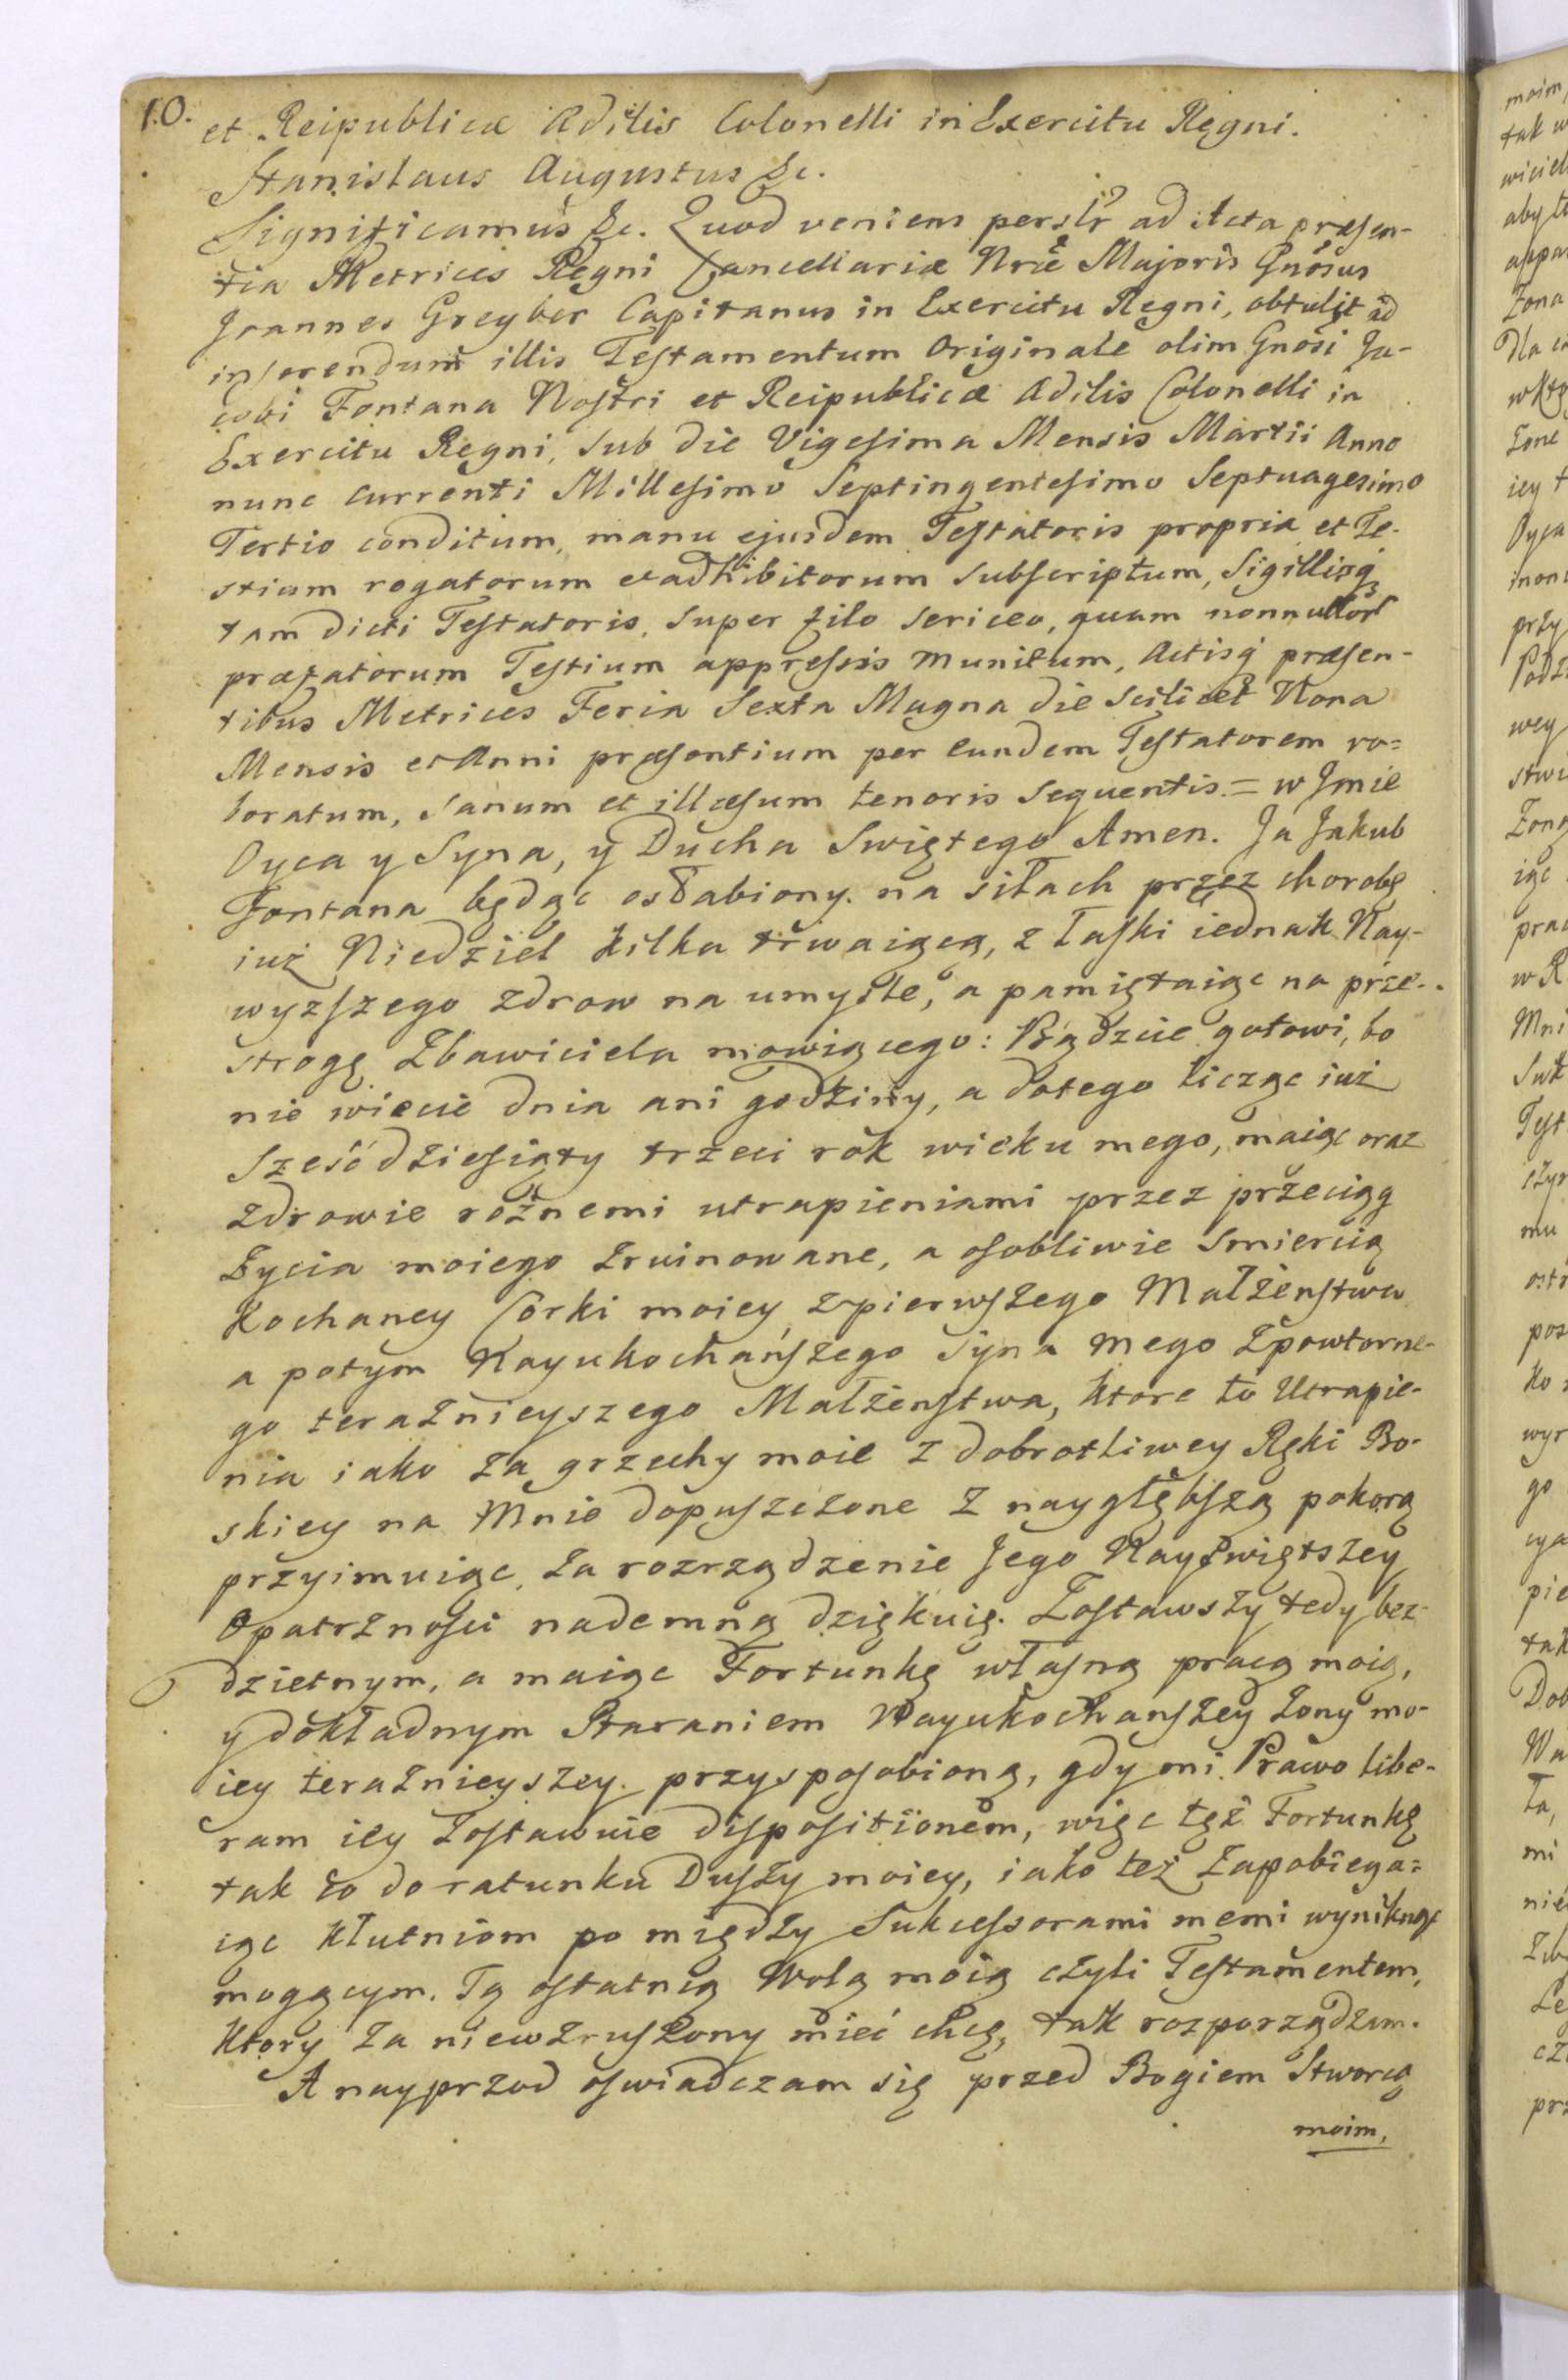 10.
et Reipublicæ Ædilis Colonelli in Exercitu Regni.
Stanislaus Augustus &c.
Significamus &c. Quod veniens persłr ad Acta præsen-
tia Metrices Regni Cancellariæ Nræ Majoris Gnosus
Joannes Greyber Capitanus in Exercitu Regni, obtulit ad
inserendum illis Testamentum Originale olim Gnosi Ja-
cobi Fontana Nostri et Reipublicæ Ædilis Colonelli in
Exercitu Regni, sub die Vigesima Mensis Martii Anno
nunc currenti Millesimo Septingentesimo Septuagesimo
Tertio conditum, manu ejusdem Testatoris propria et Te-
stium rogatorum et adhibitorum subscriptum, Sigillisq
tam dicti Testatoris, super filo sericeo, quam nonnullor
præfatorum Testium appressis munitum, Actisq præsen-
tibus Metrices Feria Sexta Magna die scilicet Nona
Mensis et Anni præsentium per eundem Testatorem ro=
boratum, sanum et illæsum tenoris sequentis = w Jmie
Oyca y Syna, y Ducha Swiętego Amen. Ja Jakub
Fontana będąc osłabiony na siłach przez chorobę
iuż Niedziel kilka trwaiącą, z łaski iednak Nay-
wyzszego zdrow na umysle, a pamiętaiąc na prze-
strogę Zbawiciela mowiącego: Bądzcie gotowi, bo
nie wiecie dnia ani godziny, a dotego licząc iuż
Sześćdziesiąty trzeci rok wieku mego, maiąc oraz
zdrowie rożnemi utrapieniami przez przeciąg
Życia moiego zruinowane, a osobliwie smiercią
Kochaney Corki moiey z pierwszego Małżenstwa
a potym Nayukochańszego Syna mego z powtorne-
go teraznieyszego Małżenstwa, ktore to Utrapie-
nia iako za grzechy moie z dobrotliwey Ręki Bo-
skiey na Mnie dopuszczone z naygłębszą pokorą
przyimuiąc, za rozrządzenie Jego Nayświętszey
Opatrznosci nademną dziękuię. Zostawszy tedy bez-
dzietnym, a maiąc Fortunkę własną pracą moią,
y dokładnym Staraniem Nayukochanszey Żony mo-
iey teraznieyszey przysposobioną, gdy mi Prawo libe-
ram iey zostawuie dispositionem, więc tęż Fortunkę
tak to do ratunku Duszy moiey, iako też zapobiega=
iąc kłutniom po między Sukcessorami memi wyniknąć
mogącym. Tą ostatnią Wolą moią czyli Testamentem,
ktory za niewzruszony mieć chcę, tak rozporządzam.
A nayprzod oswiadczam się przed Bogiem Stworcą
moim,